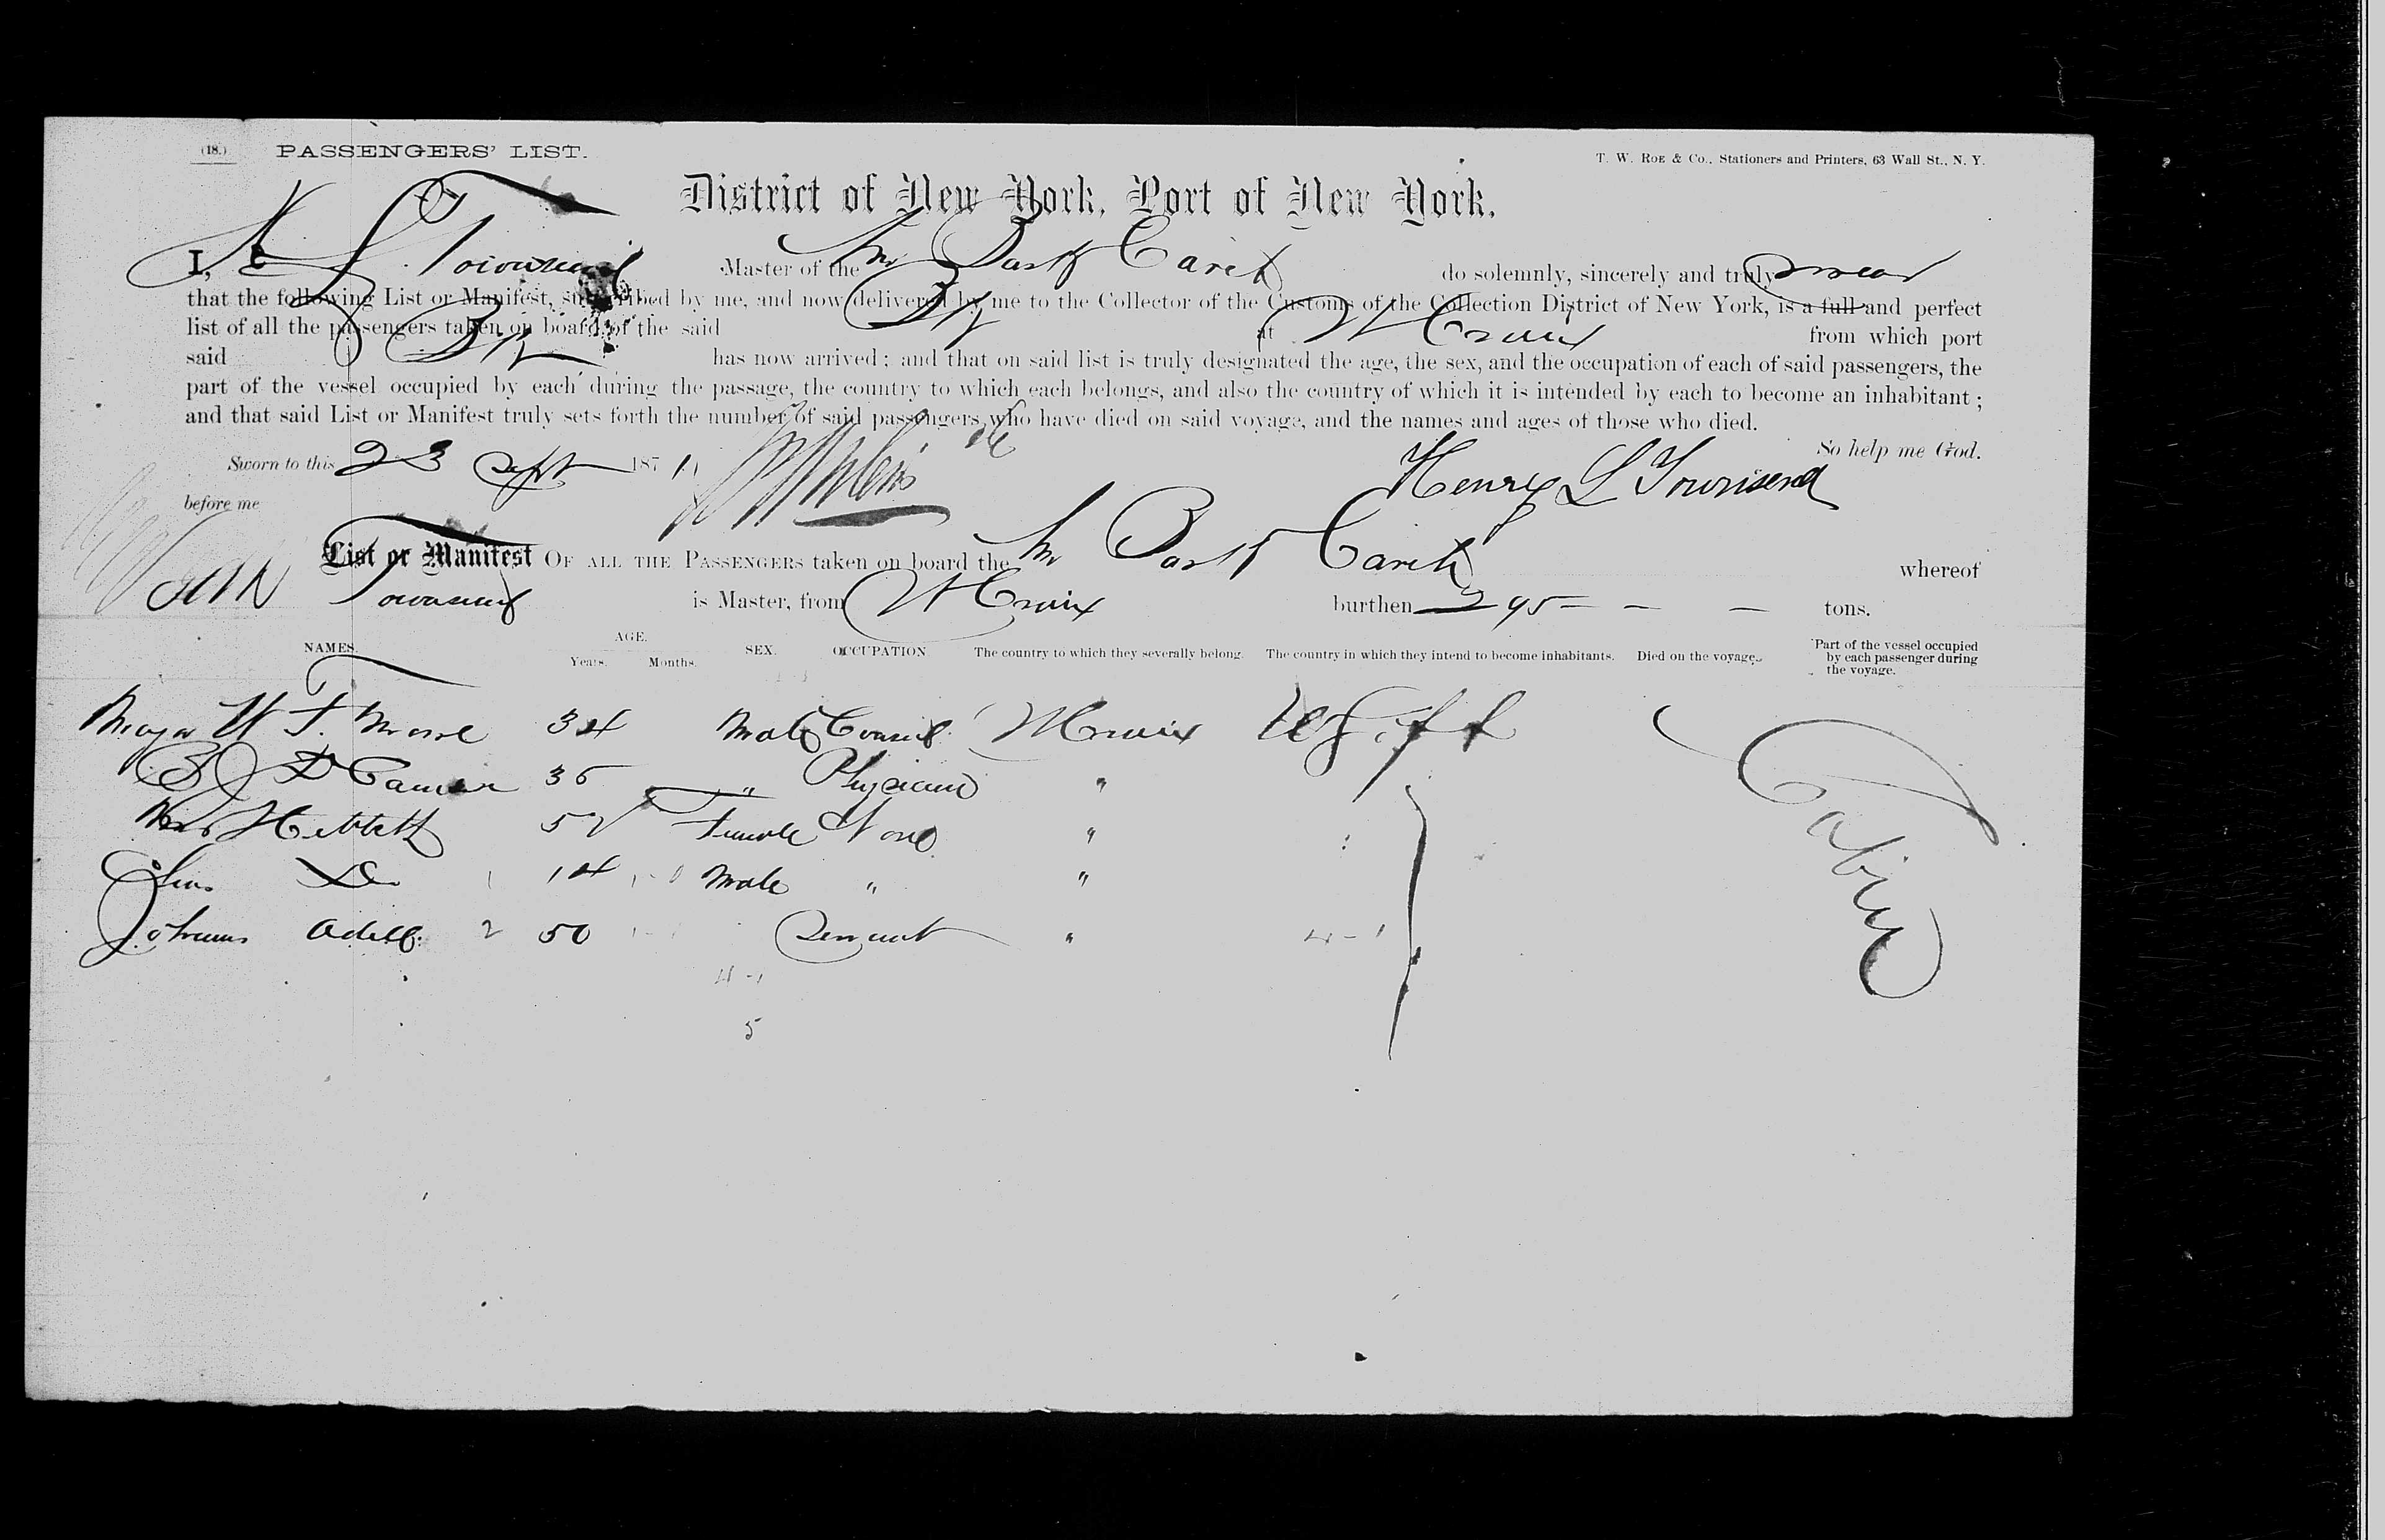 (18.) PASSENGERS' LIST.
T. W. ROE & Co., Stationers and Printers, 63 Wall St., N. Y.
District of New York, Port of New York.
I, H L Townsend Master of the Bark do solemnly, sincerely and truly swear
that the following List or Manifest, subscribed by me, and now delivered by me to the Collector of the Customs of the Collection District of New York, is a full and perfect
list of all the passengers taken on board of the said Bk at St Croix from which port
said Bk has now arrived; and that on said list is truly designated the age, the sex, and the occupation of each of said passengers, the
part of the vessel occupied by each during the passage, the country to which each belongs, and also the country of which it is intended by each to become an inhabitant;
and that said List or Manifest truly sets forth the number of said passengers who have died on said voyage, and the names and ages of those who died.
So help me God.
Sworn to this 23 Sept 1871
Henry L Townsend
before me
List or Manifest OF ALL THE PASSENGERS taken on board the Bark whereof
Townsend is Master, from St Croix burthen 295 tons.
NAMES. AGE. Years. Months. SEX. OCCUPATION. The country to which they severally belong. The country in which they intend to become inhabitants. Died on the voyage. Part of the vessel occupied by each passenger during the voyage.
Major 34 Male Consul St Croix
36 " Physician "
Mrs 52 Female None "
14 Male " "
2 50 Servant " 4-1
Cabin
4-1
5